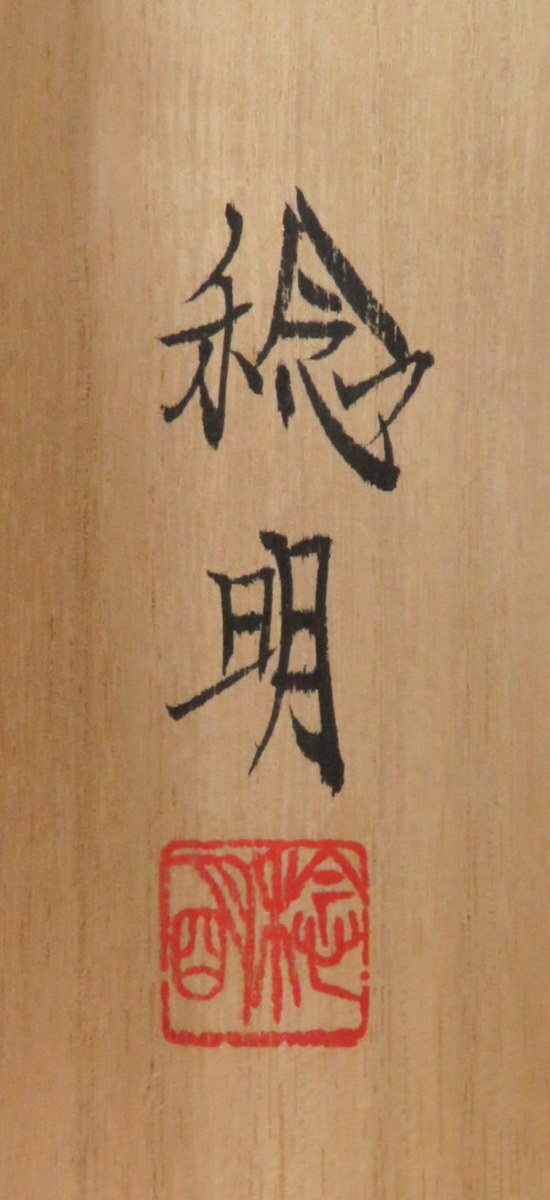 稔明
稔明